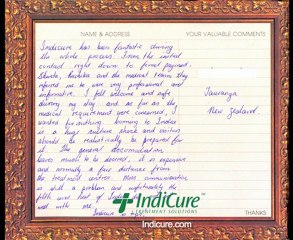 NAME & ADDRESS YOUR VALUABLE COMMENTS
Indicure has been fantastic during
the whole process. From the initial
contact right down to final payment.
and the medical team they
referred me to were very professional and
informative. I felt welcome and safe
during my stay and as far as the
medical requirements were concerned, I
wanted for nothing. Coming to India
is a huge culture shock and visitors
should be realistically be prepared for
it. The general accommodation
leaves much to be desired, it is expensive
and normally a fair distance from
the treatment centres. Mass communication
is still a problem and unfortunately the
filth and heat of
well with me.
Indicure is
Tauranga
New Zealand
IndiCure™
TREATMENT SOLUTIONS
Indicure.com
THANKS